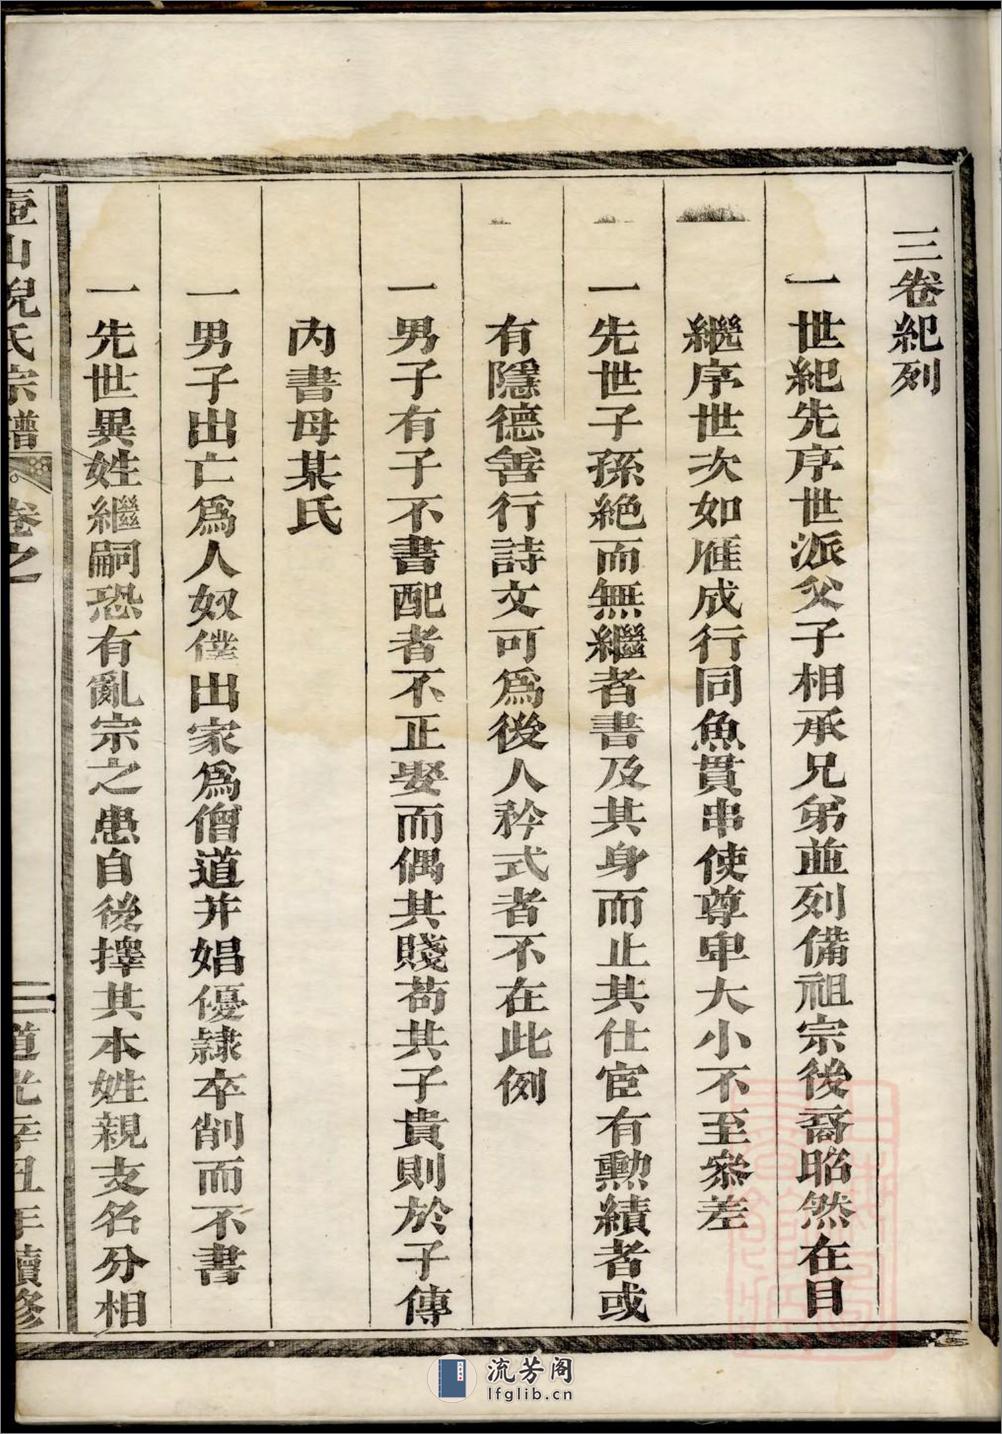 三卷紀列
一世紀先序世派父子相承兄弟並列備祖宗後裔昭然在目
繼序世次如雁成行同魚貫串使尊卑大小不至參差
一先世子孫絶而無繼者書及其身而止其仕宦有勲績者或
有隱德善行詩文可爲後人矜式者不在此例
一男子有子不書配者不正娶而偶其賤苟其子貴則於子傳
內書母某氏
一男子出亡爲人奴僕出家爲僧道并娼優隷卒削而不書
一先世異姓繼嗣恐有亂宗之患自後擇其本姓親支名分相
壺山倪氏宗譜 卷之 二 道光辛丑年續修
流芳阁
lfglib.cn